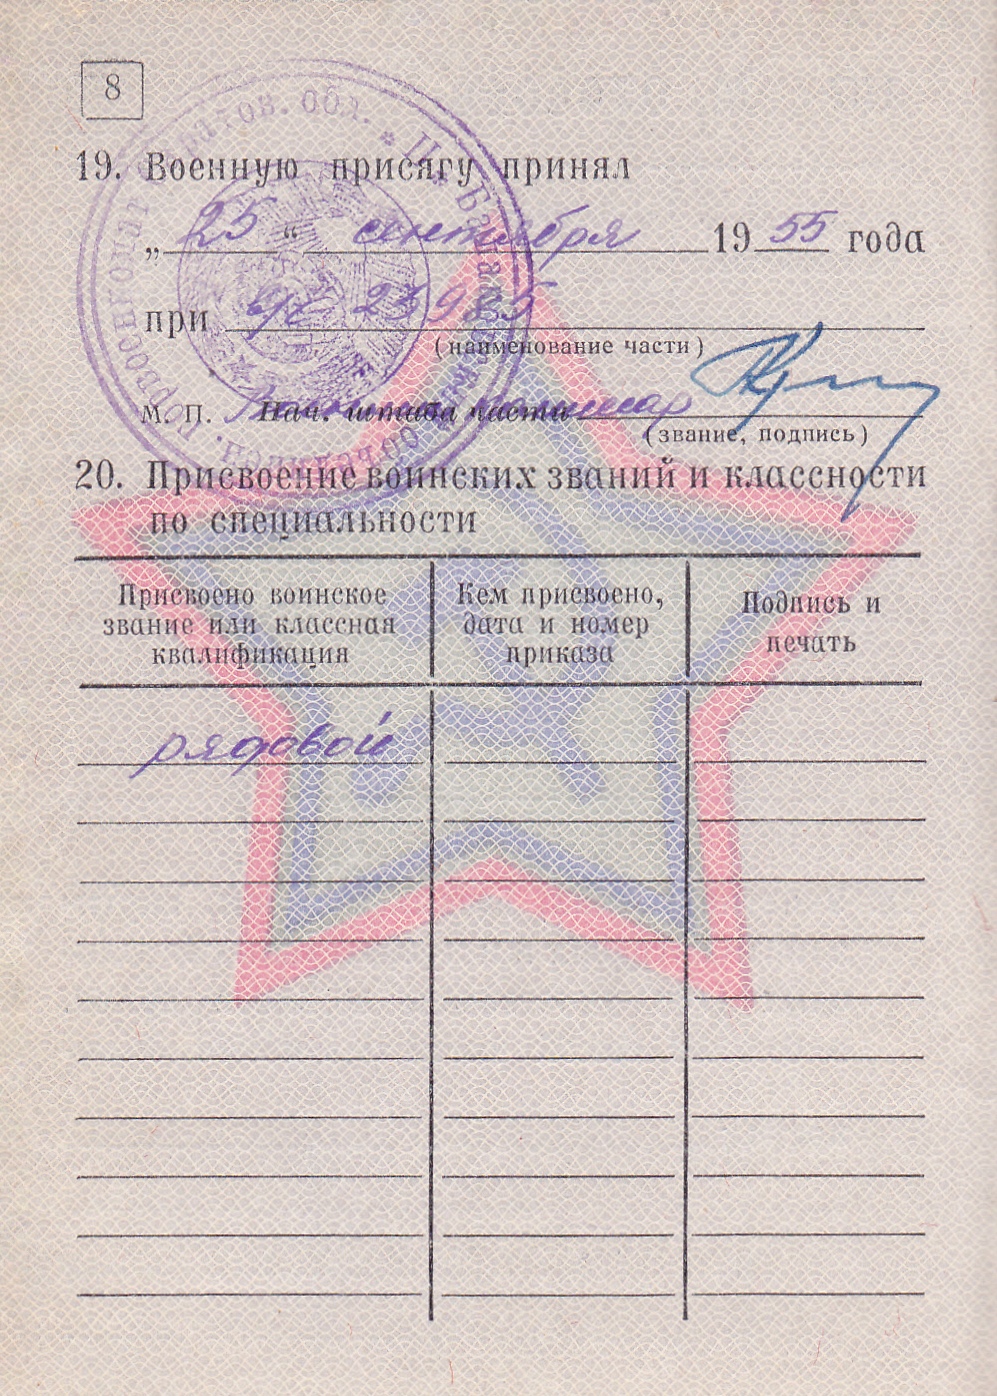 8
19. Военную присягу принял
„ 25 “ сентября 19 55 года
при в/ч 23985
(наименование части)
М. П. Нач. штаба части
(звание, подпись)
20. Присвоение воинских званий и классности
по специальности
Присвоено воинское
звание или классная
квалификация
Кем присвоено,
дата и номер
приказа
Подпись и
печать
рядовой